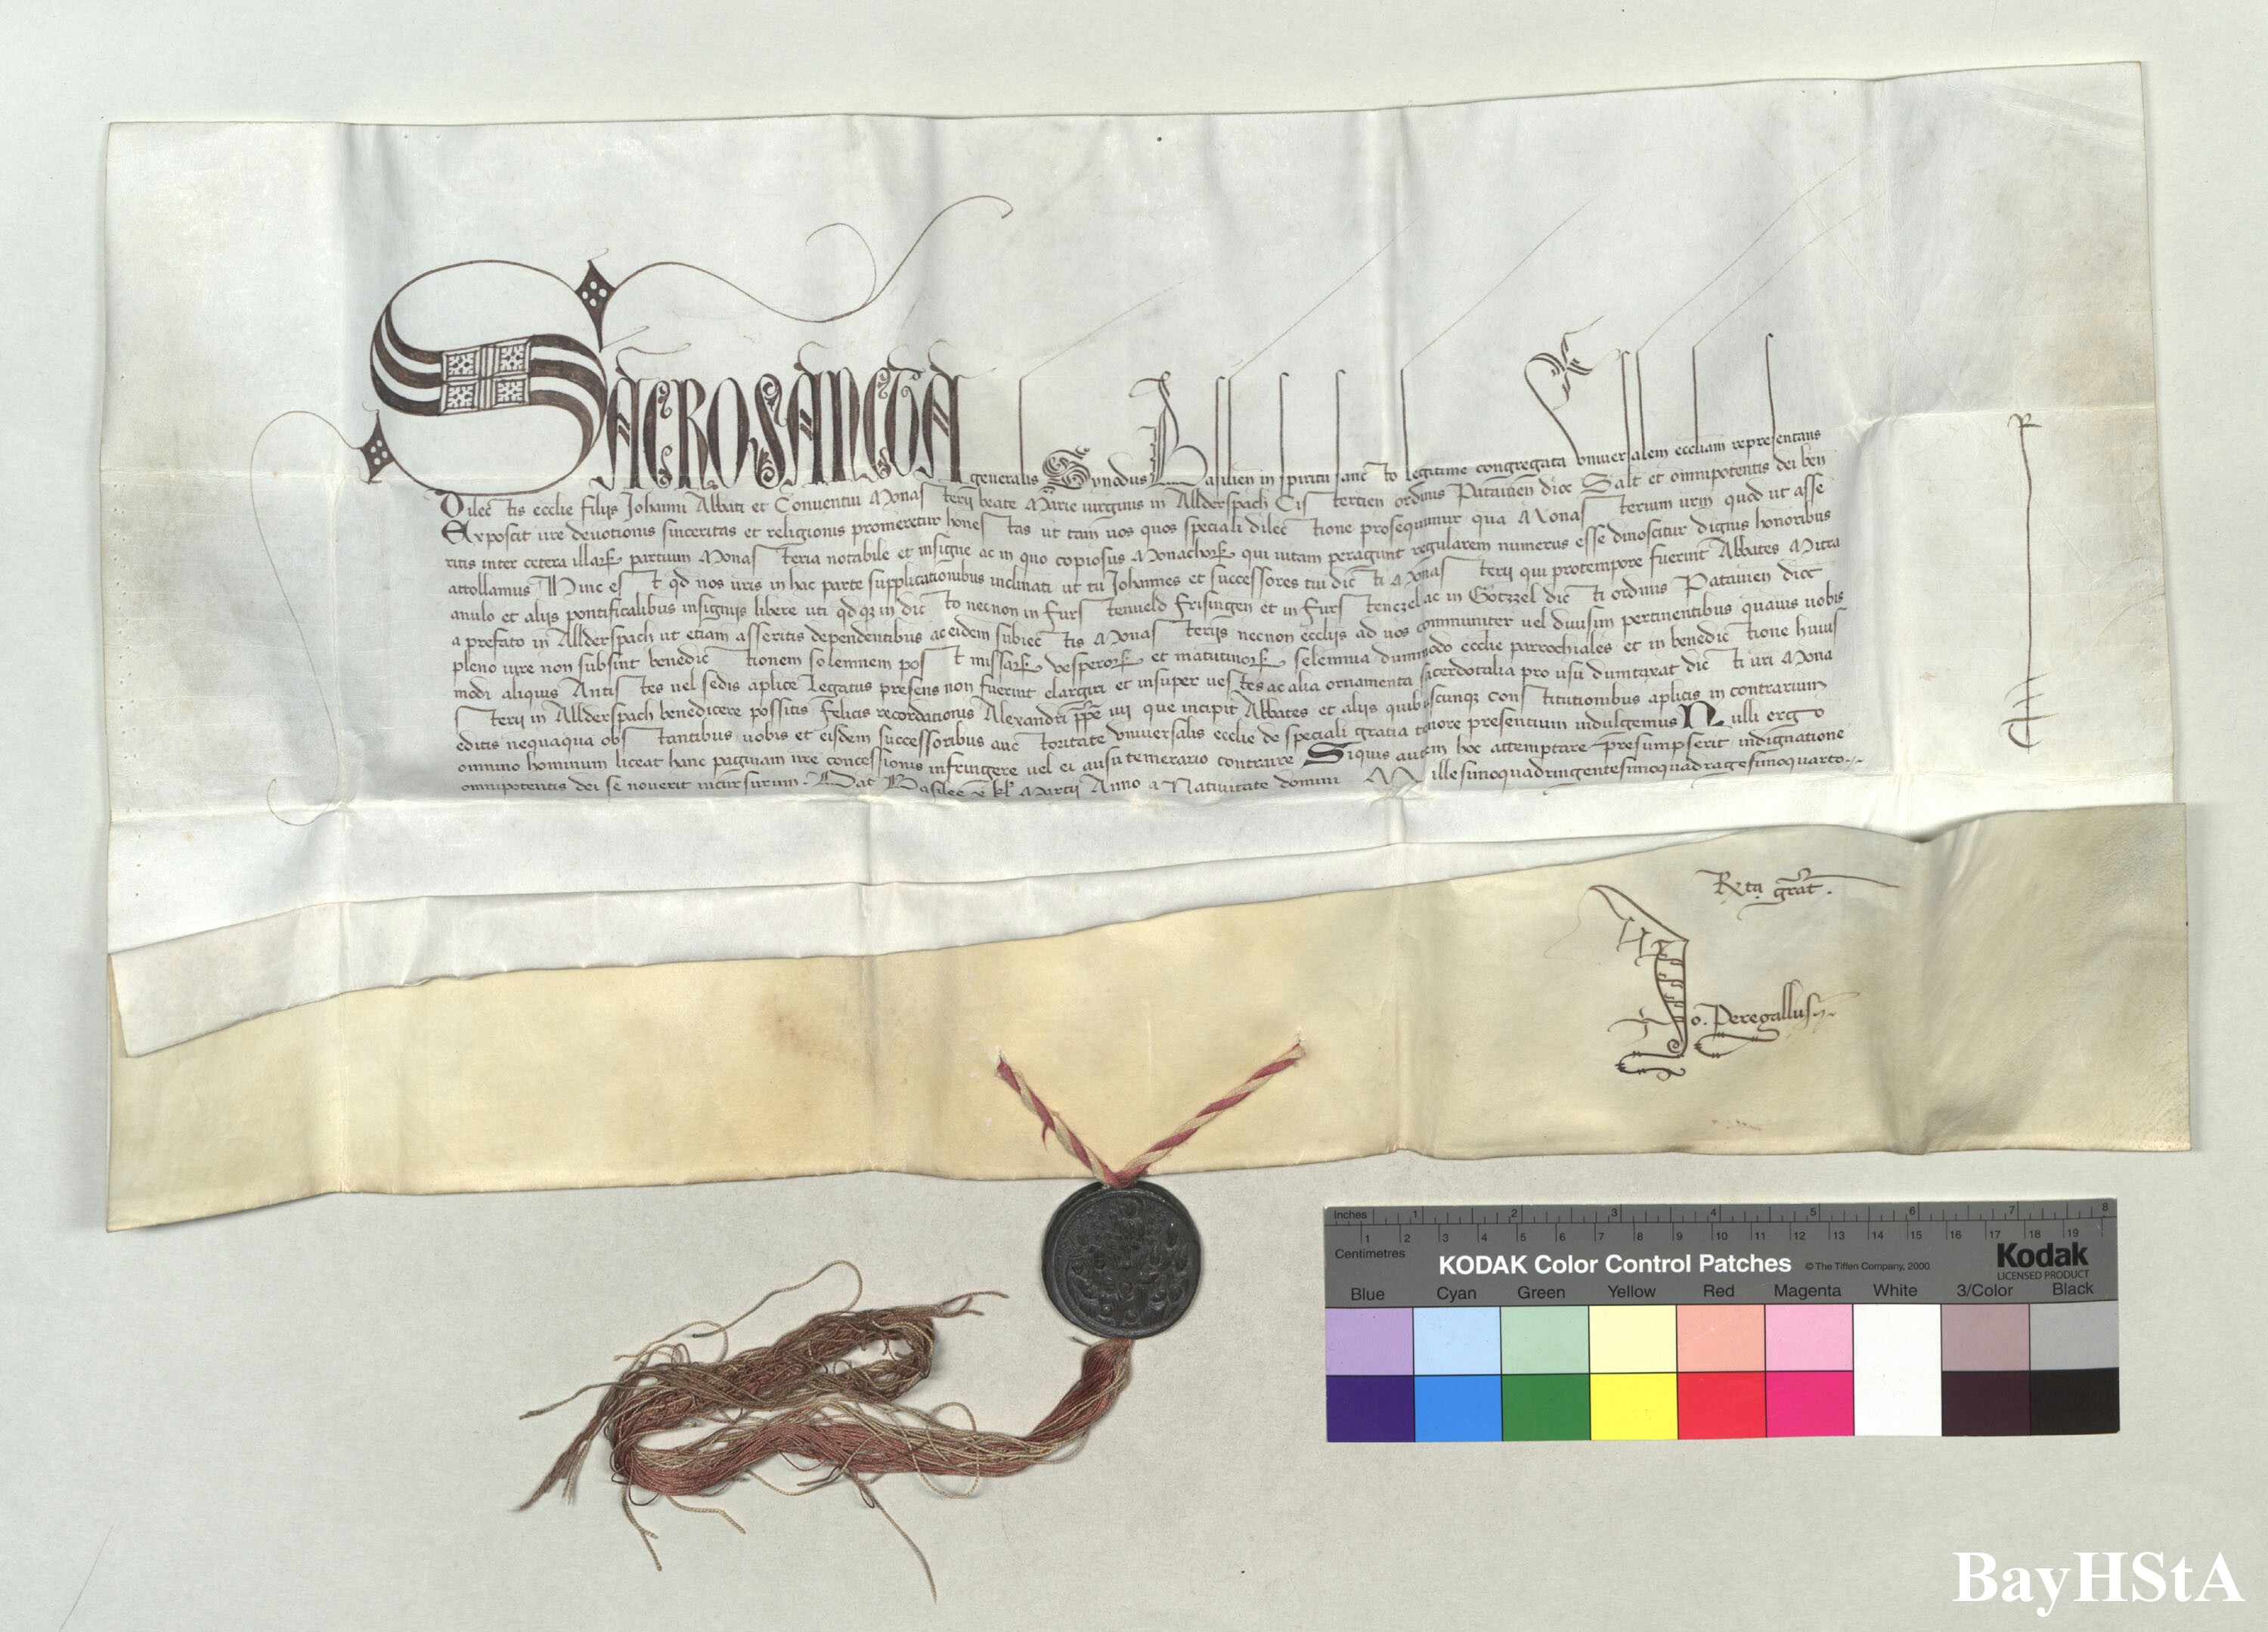 SACROSANCTA generalis Synodus Basilien in spiritu sancto legitime congregata universalem eccliam representans
Dilectis ecclie filijs Johanni Abbati et Conventui Monasterij beate Marie virginis in Allderspach Cistertien ordinis Patavien dioc Salt et omnipotentis dei ben
Exposcit vre devotionis sinceritas et religionis promeretur honestas ut tam vos quos speciali dilectione prosequimur qua Monasterium vrm quod ut asse
ritis inter cetera illarꝝ partium Monasteria notabile et insigne ac in quo copiosus Monachorꝝ qui vitam peragunt regularem numerus esse dinoscitur dignis honoribus
attollamus Hinc est qd nos vris in hac parte supplicationibus inclinati ut tu Johannes et successores tui dicti Monasterij qui protempore fuerint Abbates Mitra
anulo et alijs pontificalibus insignijs libere uti qdqꝫ in dicto necnon in Furstenveld Frisingen et in Furstenczel ac in Gotzzel dicti ordinis Patavien dioc
a prefato in Allderspach ut etiam asseritis dependentibus ac eidem subiectis Monasterijs necnon ecclijs ad vos communiter vel divisim pertinentibus quavis vobis
pleno iure non subsint benedictionem solemnem post missarꝝ vesperorꝝ et matutinorꝝ solemnia dummodo ecclie parrochiales et in benedictione huius
modi aliquis Antistes vel sedis aplice Legatus presens non fuerint elargiri et insuper vestes ac alia ornamenta sacerdotalia pro usu dumtaxat dicti vri Mona
sterij in Allderspach benedicere possitis felicis recordationis Alexandri ppe iiij que incipit Abbates et alijs quibuscunqꝫ constitutionibus aplicis in contrarium
editis nequaquam obstantibus vobis et eisdem successoribus auctoritate universalis ecclie de speciali gratia tenore presentium indulgemus Nulli ergo
omnino hominum liceat hanc paginam nre concessionis infringere vel ei ausu temerario contraire Siquis autem hoc attemptare presumpserit indignationem
omnipotentis dei se noverit incursurum. Dat Basilee v kl Martij Anno a Nativitate domini Millesimoquadringentesimoquadragesimoquarto
Rta grat.
Jo. Peregallus
Inches 1 2 3 4 5 6 7 8
1 2 3 4 5 6 7 8 9 10 11 12 13 14 15 16 17 18 19
Centimetres
KODAK Color Control Patches © The Tiffen Company, 2000 Kodak
LICENSED PRODUCT
Blue Cyan Green Yellow Red Magenta White 3/Color Black
BayHStA